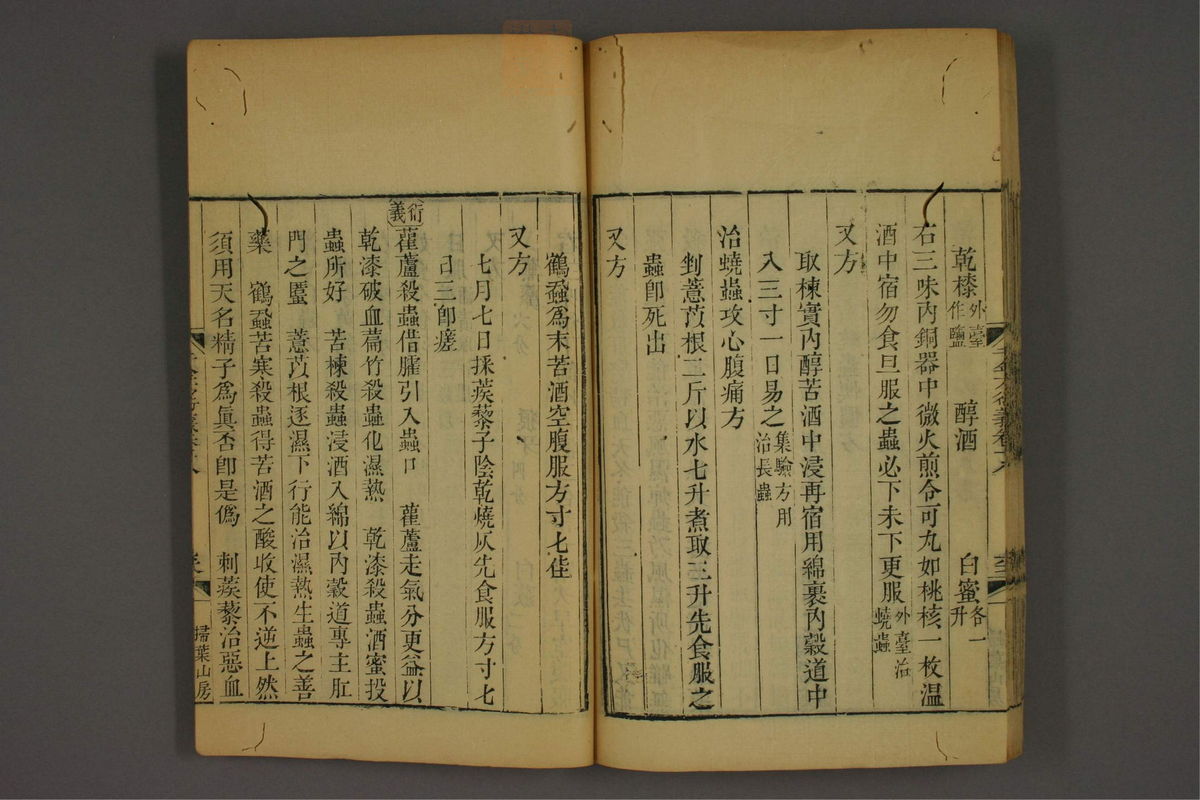 乾㯃外臺作鹽　醇酒　白蜜各一升
右三味內銅器中微火煎令可丸如桃核一枚溫
酒中宿勿食旦服之蟲必下未下更服外臺治蟯蟲
又方
取楝實內醇苦酒中浸再宿用綿裹內穀道中
入三寸一日易之集驗方用治長蟲
治蟯蟲攻心腹痛方
剉薏苡根二斤以水七升煮取三升先食服之
蟲卽死出
又方
鶴蝨爲末苦酒空腹服方寸匕佳
又方
七月七日採蒺藜子陰乾燒灰先食服方寸匕
日三卽瘥
衍義
雚蘆殺蟲借臛引入蟲口　雚蘆走氣分更益以
乾漆破血萹竹殺蟲化濕熱　乾漆殺蟲酒蜜投
蟲所好　苦楝殺蟲浸酒入綿以內穀道專主肛
門之䘌　薏苡根逐濕下行能治濕熱生蟲之善
藥　鶴蝨苦寒殺蟲得苦酒之酸收使不逆上然
須用天名精子爲眞否卽是僞　刺蒺藜治惡血
掃葉山房